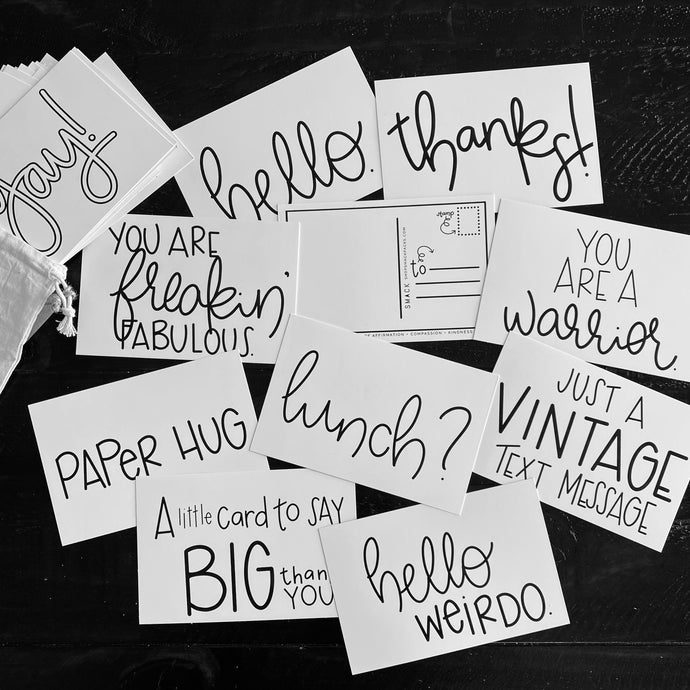 yay!
hello.
thanks!
YOU ARE
freakin'
FABULOUS.
stamp
to
SMACK
YOU
ARE A
warrior.
AFFIRMATION • COMPASSION • KINDNESS
PAPER HUG
lunch?
JUST A
VINTAGE
TEXT MESSAGE
A little card to SAY
BIG than
YOU
hello
WEIRDO.